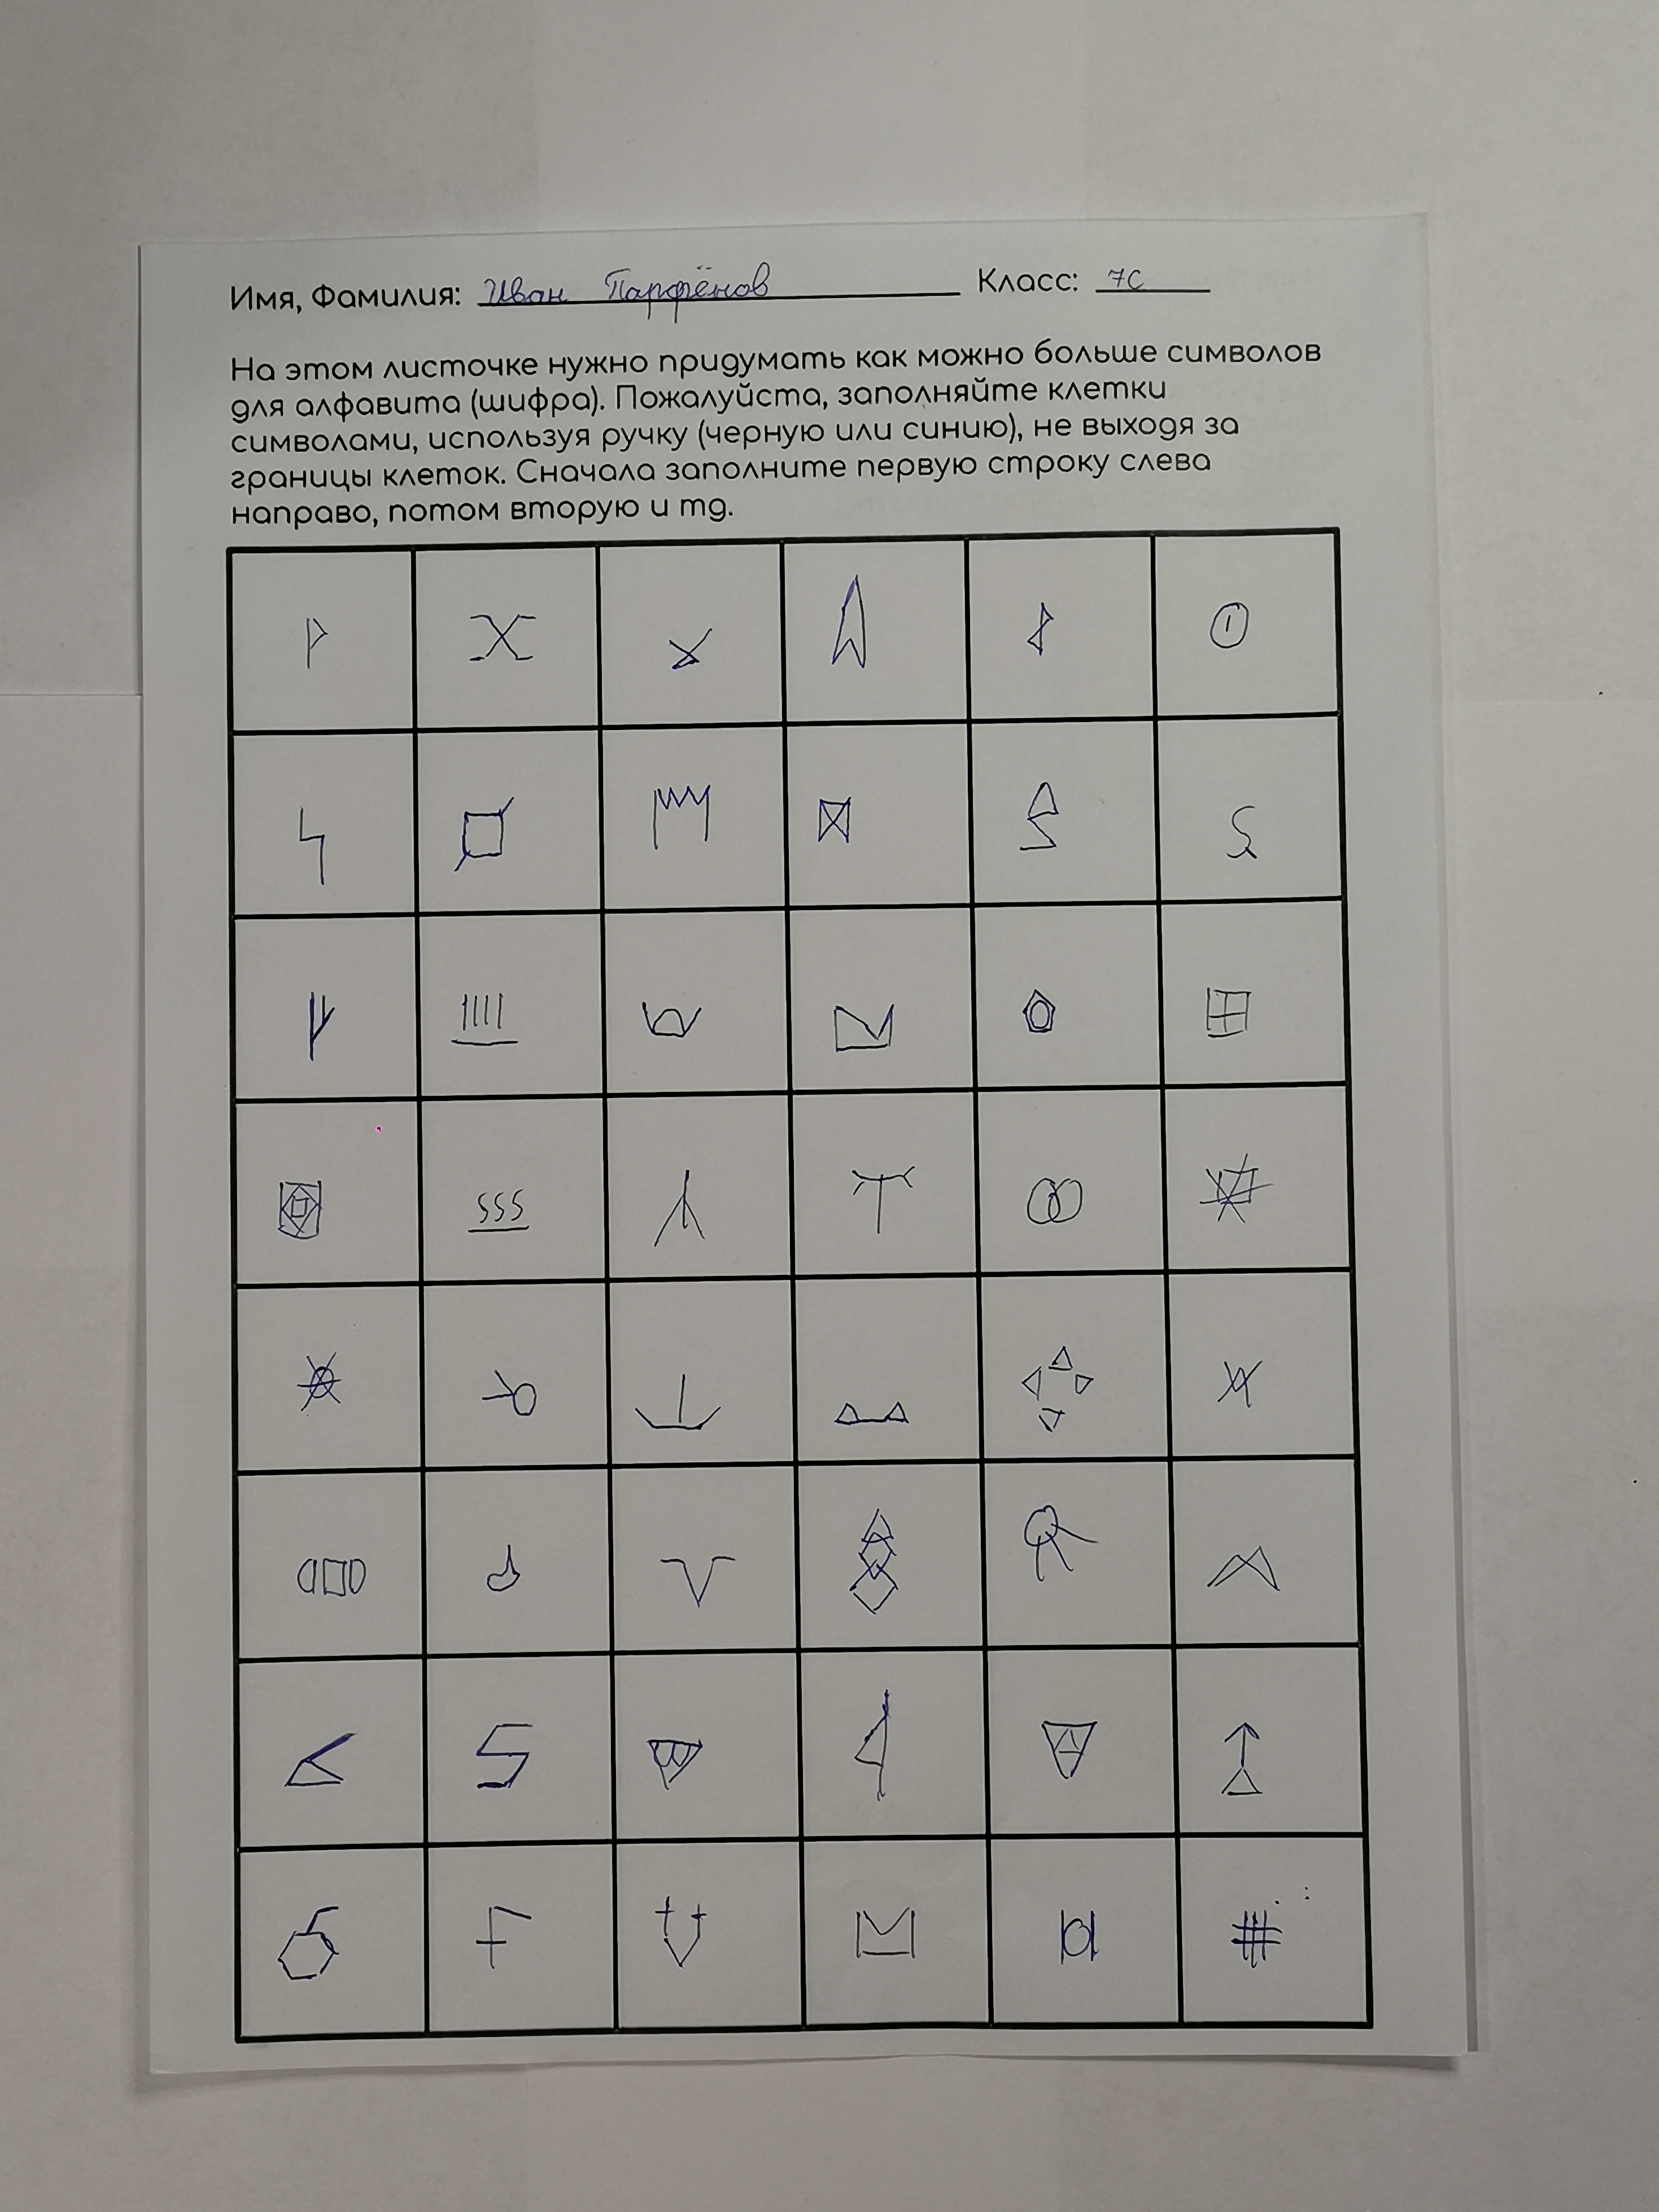 Имя, Фамилия: Иван Парфёнов Класс: 7С
На этом листочке нужно придумать как можно больше символов
для алфавита (шифра). Пожалуйста, заполняйте клетки
символами, используя ручку (черную или синию), не выходя за
границы клеток. Сначала заполните первую строку слева
направо, потом вторую и тд.